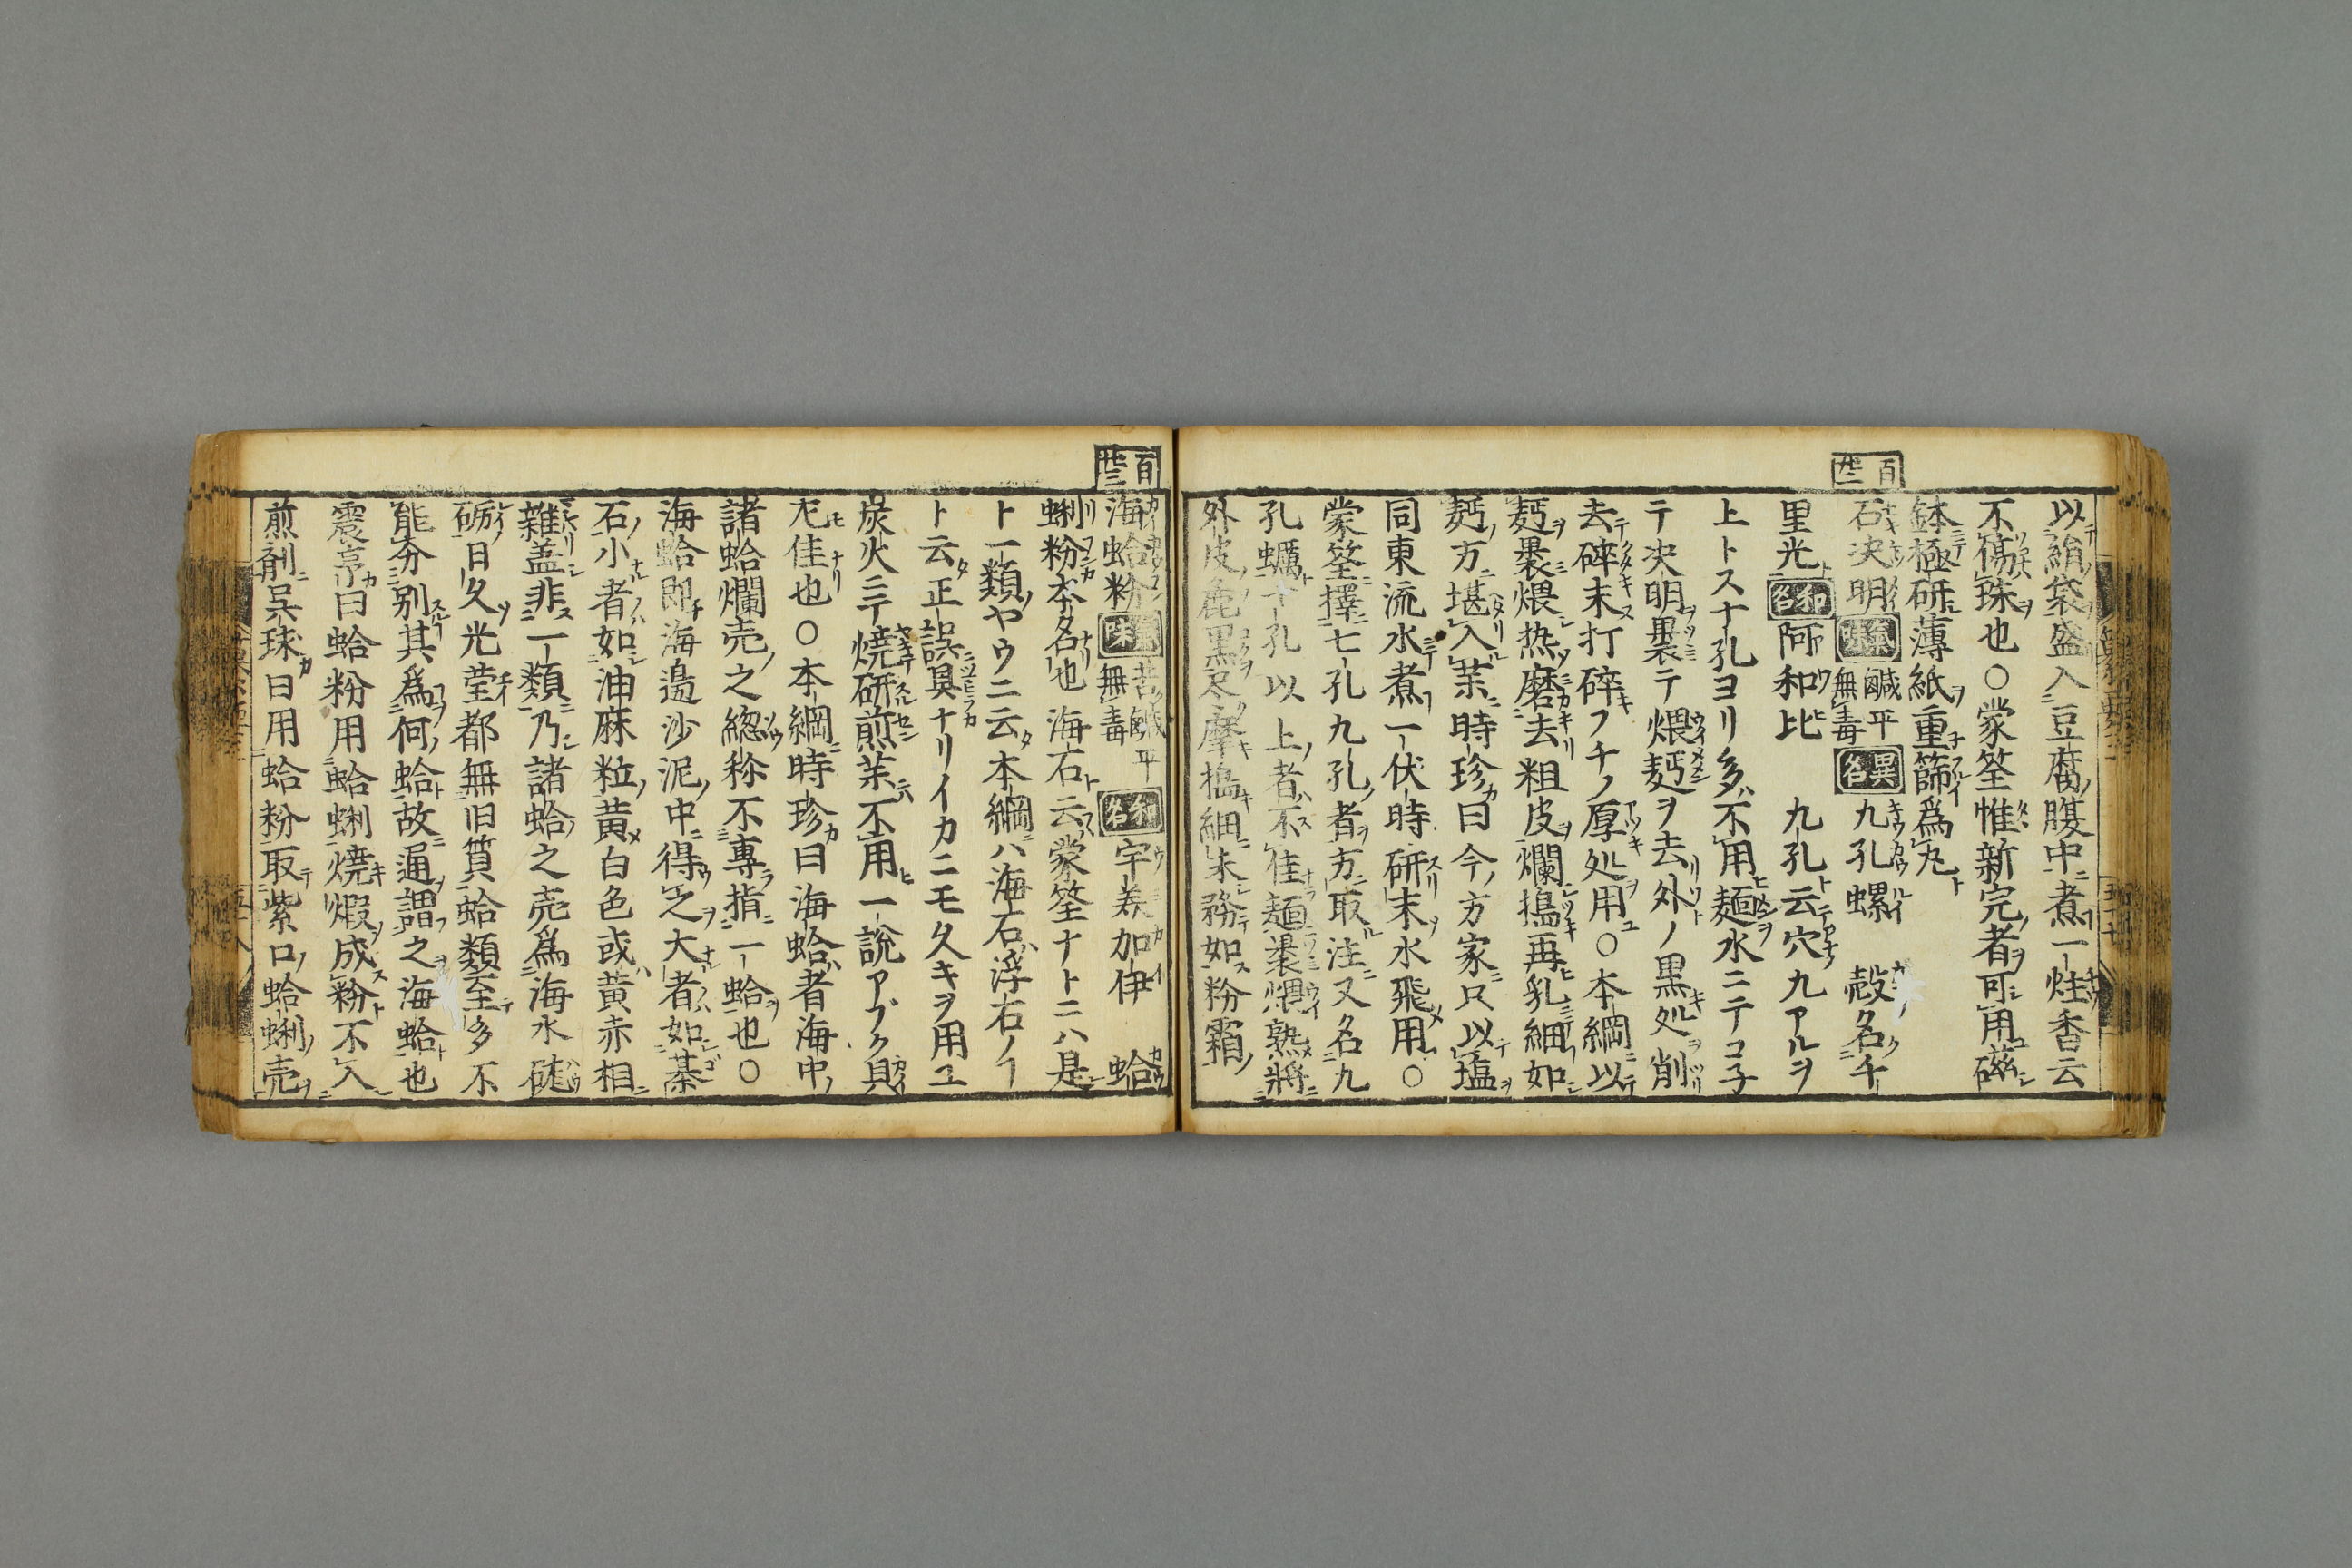 百廿二
以絹袋盛入豆腐腹中煮一炷香云
不傷珠也○蒙筌惟新完者可用磁
鉢極研薄紙重篩爲丸
石决明 氣味 鹹平無毒 異名 九孔螺 殻名千
里光 和名 阿和比 九孔云穴九アルヲ
上トス十孔ヨリ多不用麺水ニテコ子
テ决明裹テ煨麪ヲ去外ノ黒処削
去碎末打碎フチノ厚処用○本綱以
麪裹煨热磨去粗皮爛搗再乳細如
麪方堪入茱時珍曰今方家只以塩
同東流水煮一伏時研末水飛用○
蒙筌擇七孔九孔者方取注又名九
孔螺十孔以上者不佳麺裹煨熟將
外皮麁黒尽摩搗細末務如粉霜
百廿三
海蛤粉 氣味 苦鹹平無毒 和名 宇美加伊 蛤
蜊粉本名也海石云蒙筌ナトニハ是
ト一類ヤウニ云本綱ハ海石浮石ノ
ト云正誤具ナリイカニモ久キヲ用ユ
炭火ニテ燒研煎茱不用一説アブク貝
尤佳也○本綱時珍曰海蛤者海中
諸蛤爛売之緫称不專指一蛤也○
海蛤即海邉沙泥中得之大者如碁
石小者如油麻粒黄白色或黄赤相
雜盖非一類乃諸蛤之売爲海水𥗬
砺日久光莹都無旧質蛤類至多不
能分别其爲何蛤故通謂之海蛤也
震亨曰蛤粉用蛤蜊燒煆成粉不入
煎剤呉球曰用蛤粉取紫口蛤蜊売